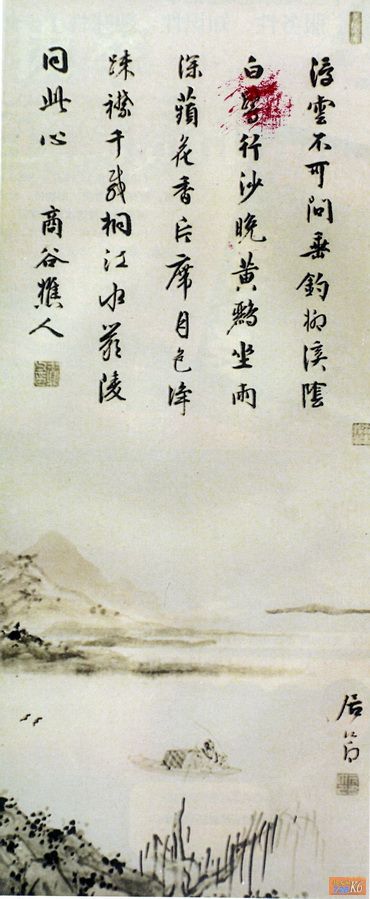 浮雲不可問垂釣柳溪陰
白行沙晚黃鸝坐雨
深蘋花香席月色
疎襟千載桐江水嚴陵
同此心 商谷樵人
居節
K6